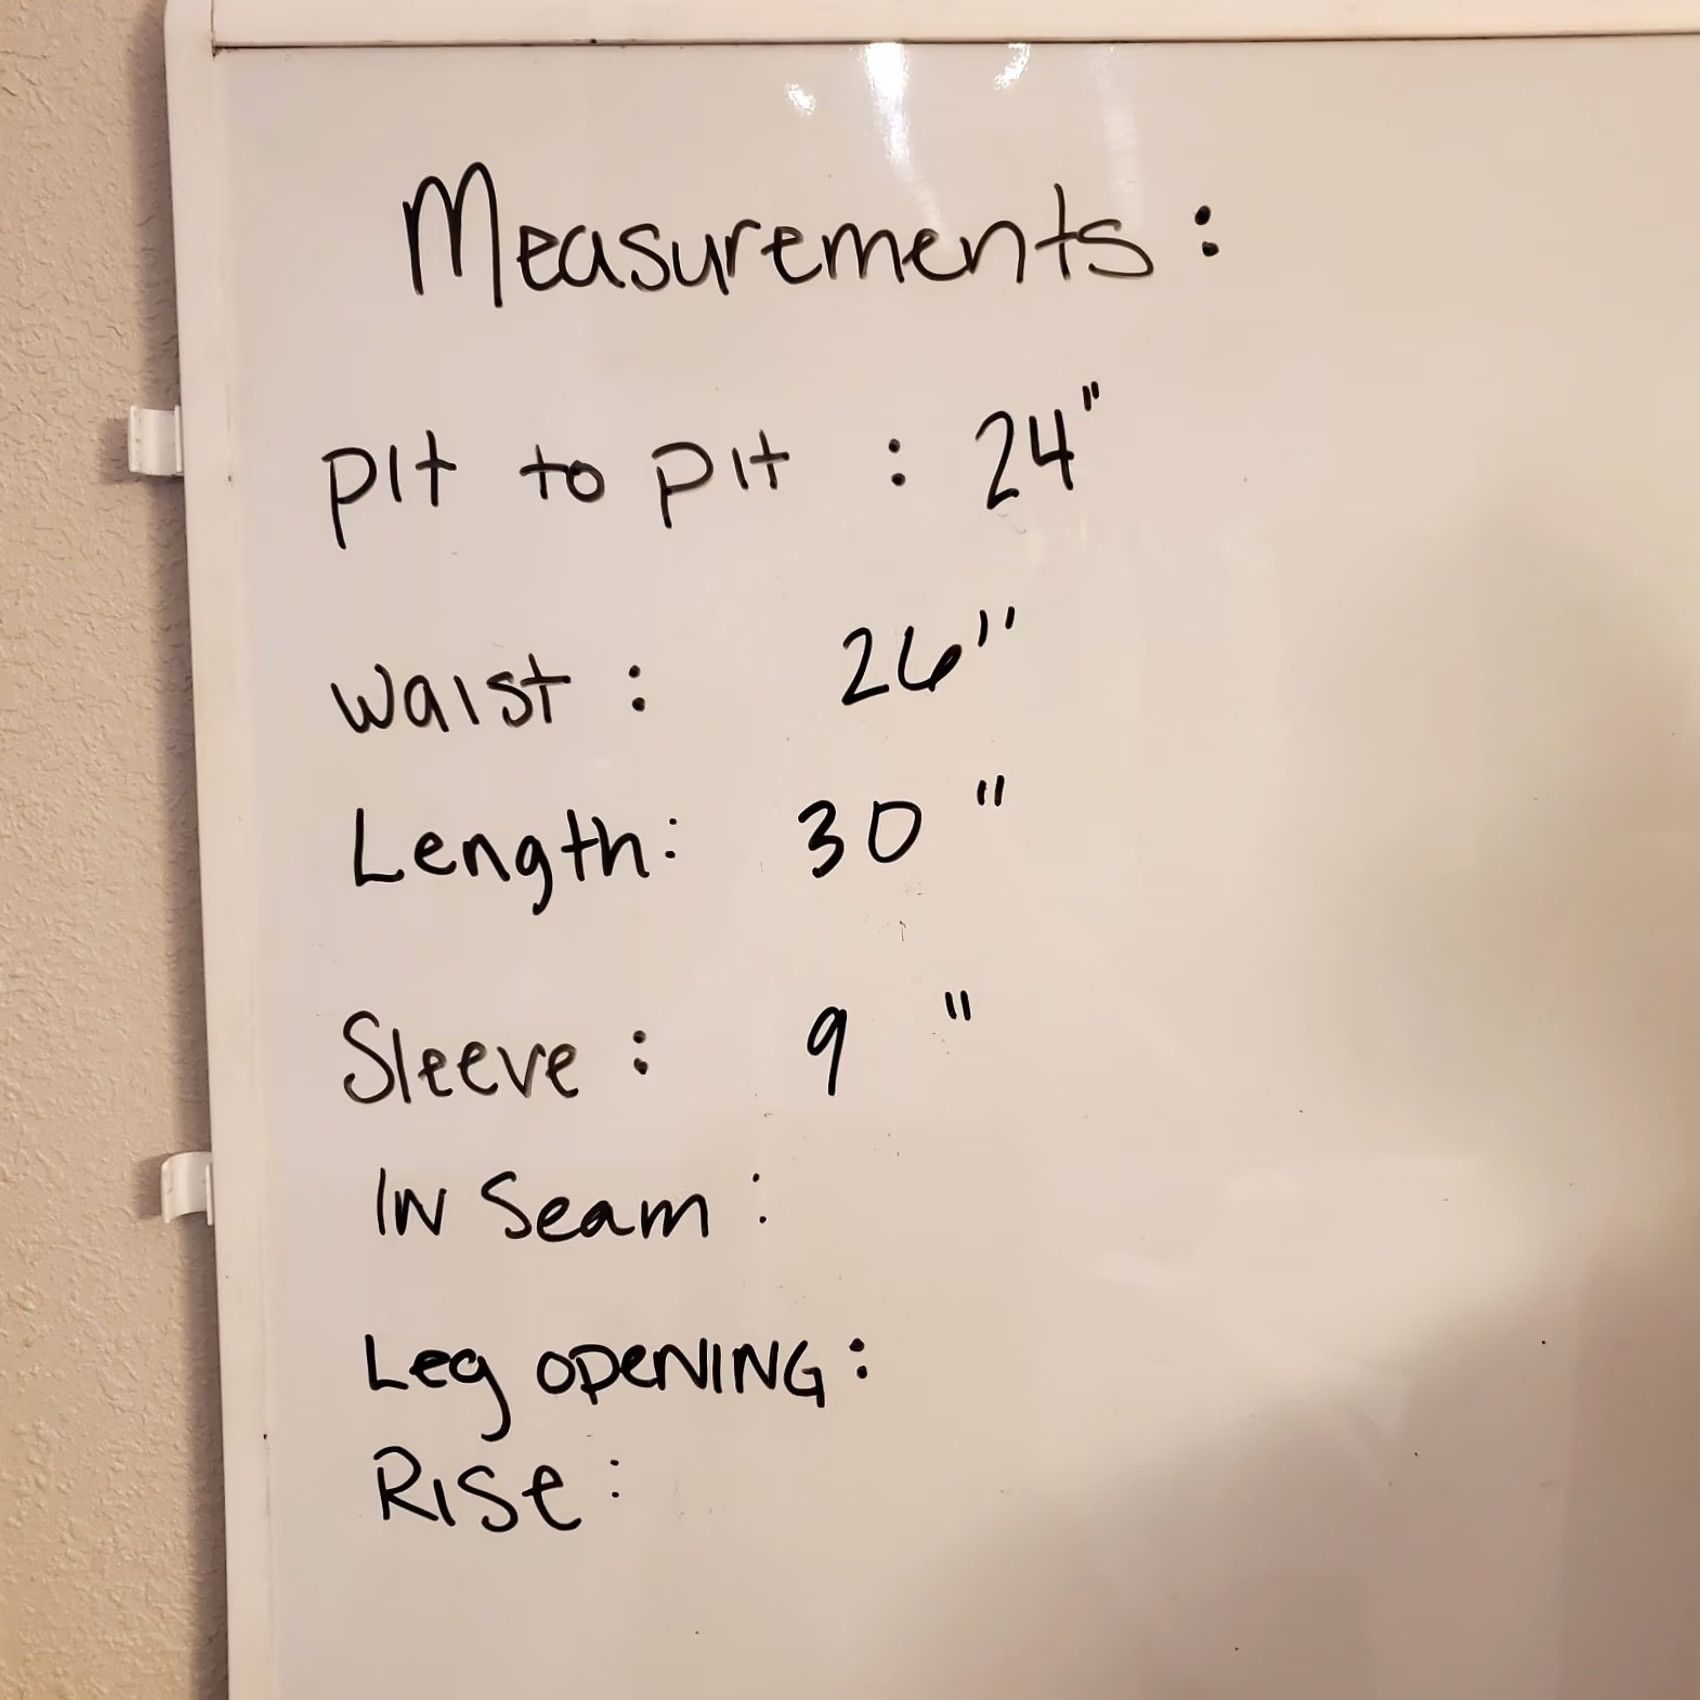 Measurements:
Pit to Pit : 24"
Waist : 26"
Length: 30 "
Sleeve : 9 "
IN Seam :
Leg OPENING:
RISe :